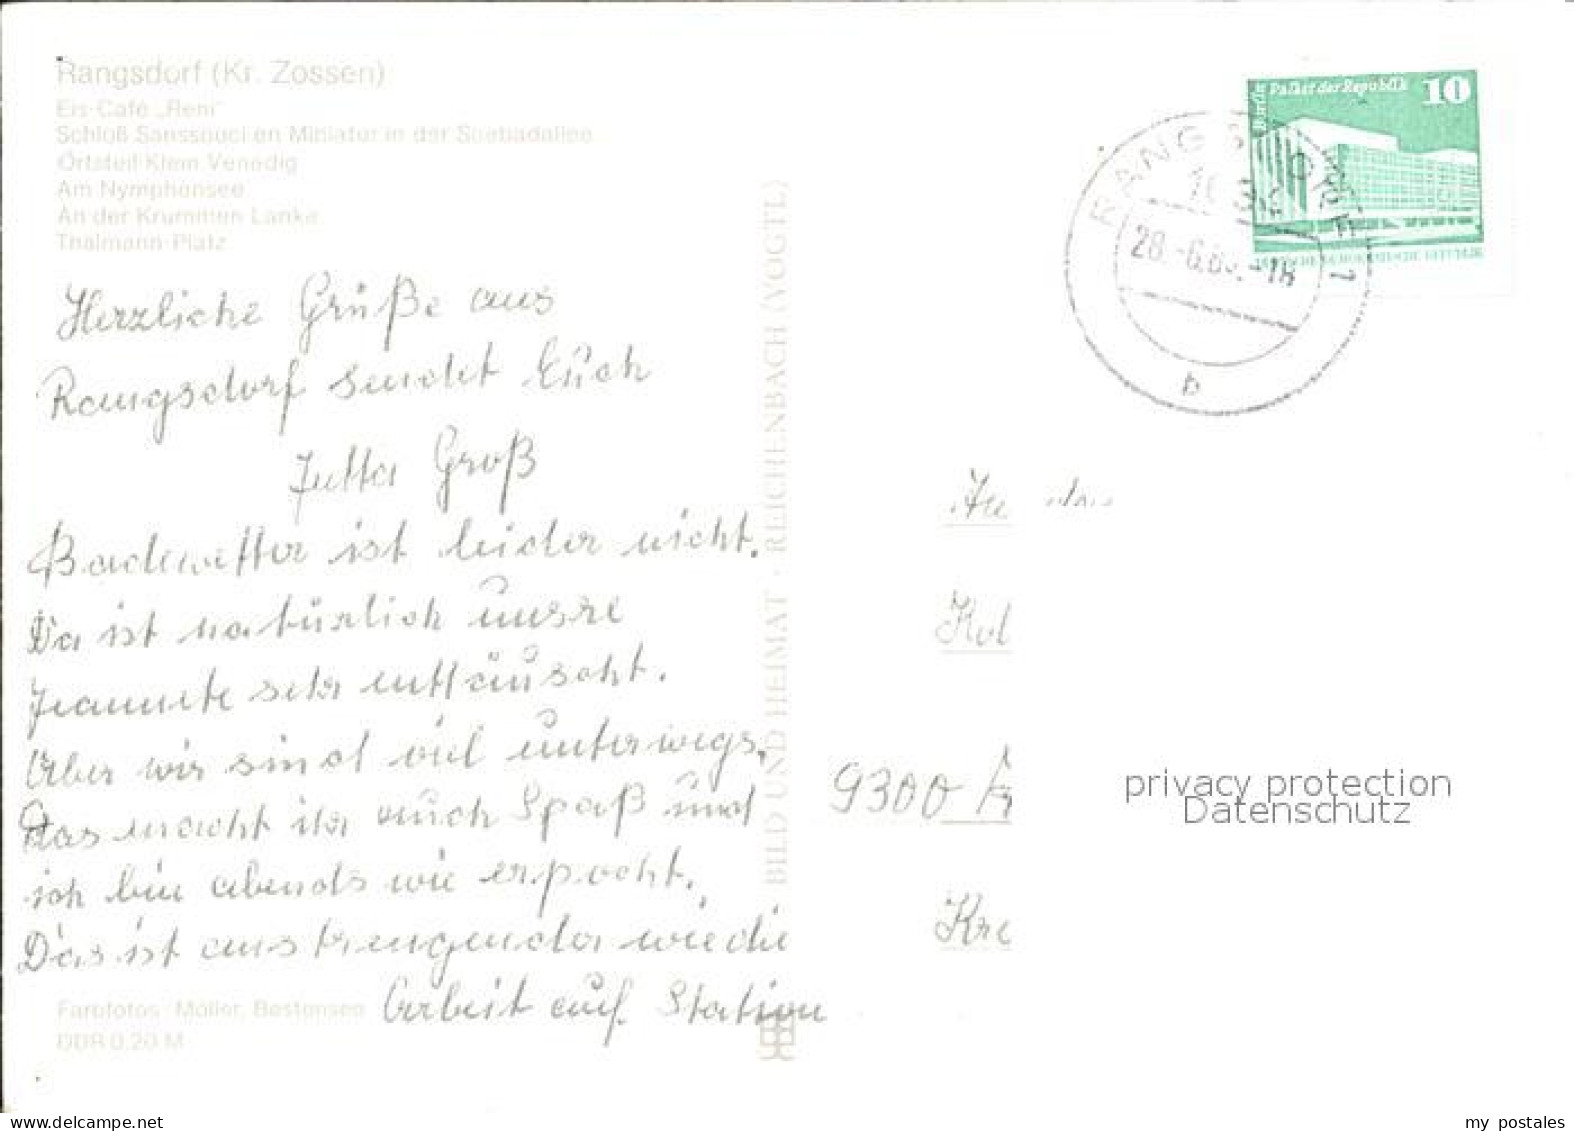 Rangsdorf (Kr. Zossen)
Eis-Café „Reni"
Schloß Sanssouci en Miniatur in der Seebadallee
Ortsteil Klein Venedig
Am Nymphensee
An der Krummen Lanke
Thälmann-Platz
Herzliche Grüße aus
Rangsdorf sendet Euch
Jutta Groß
Badewetter ist leider nicht.
Da ist natürlich unsre
Jeannete sehr enttäuscht.
Aber wir sind viel unterwegs,
das macht ihr auch Spaß und
ich bin abends wie erschlagen.
Das ist anstrengender wie die
Arbeit auf Station
Farbfotos: Möller, Bestensee
DDR 0,20 M
BILD UND HEIMAT · REICHENBACH (VOGTL)
Berlin Palast der Republik 10
DEUTSCHE DEMOKRATISCHE REPUBLIK
RANGSDORF 1
28.-6.8 .-18
b
Kol
9300
Kre
privacy protection
Datenschutz
www.delcampe.net
my postales